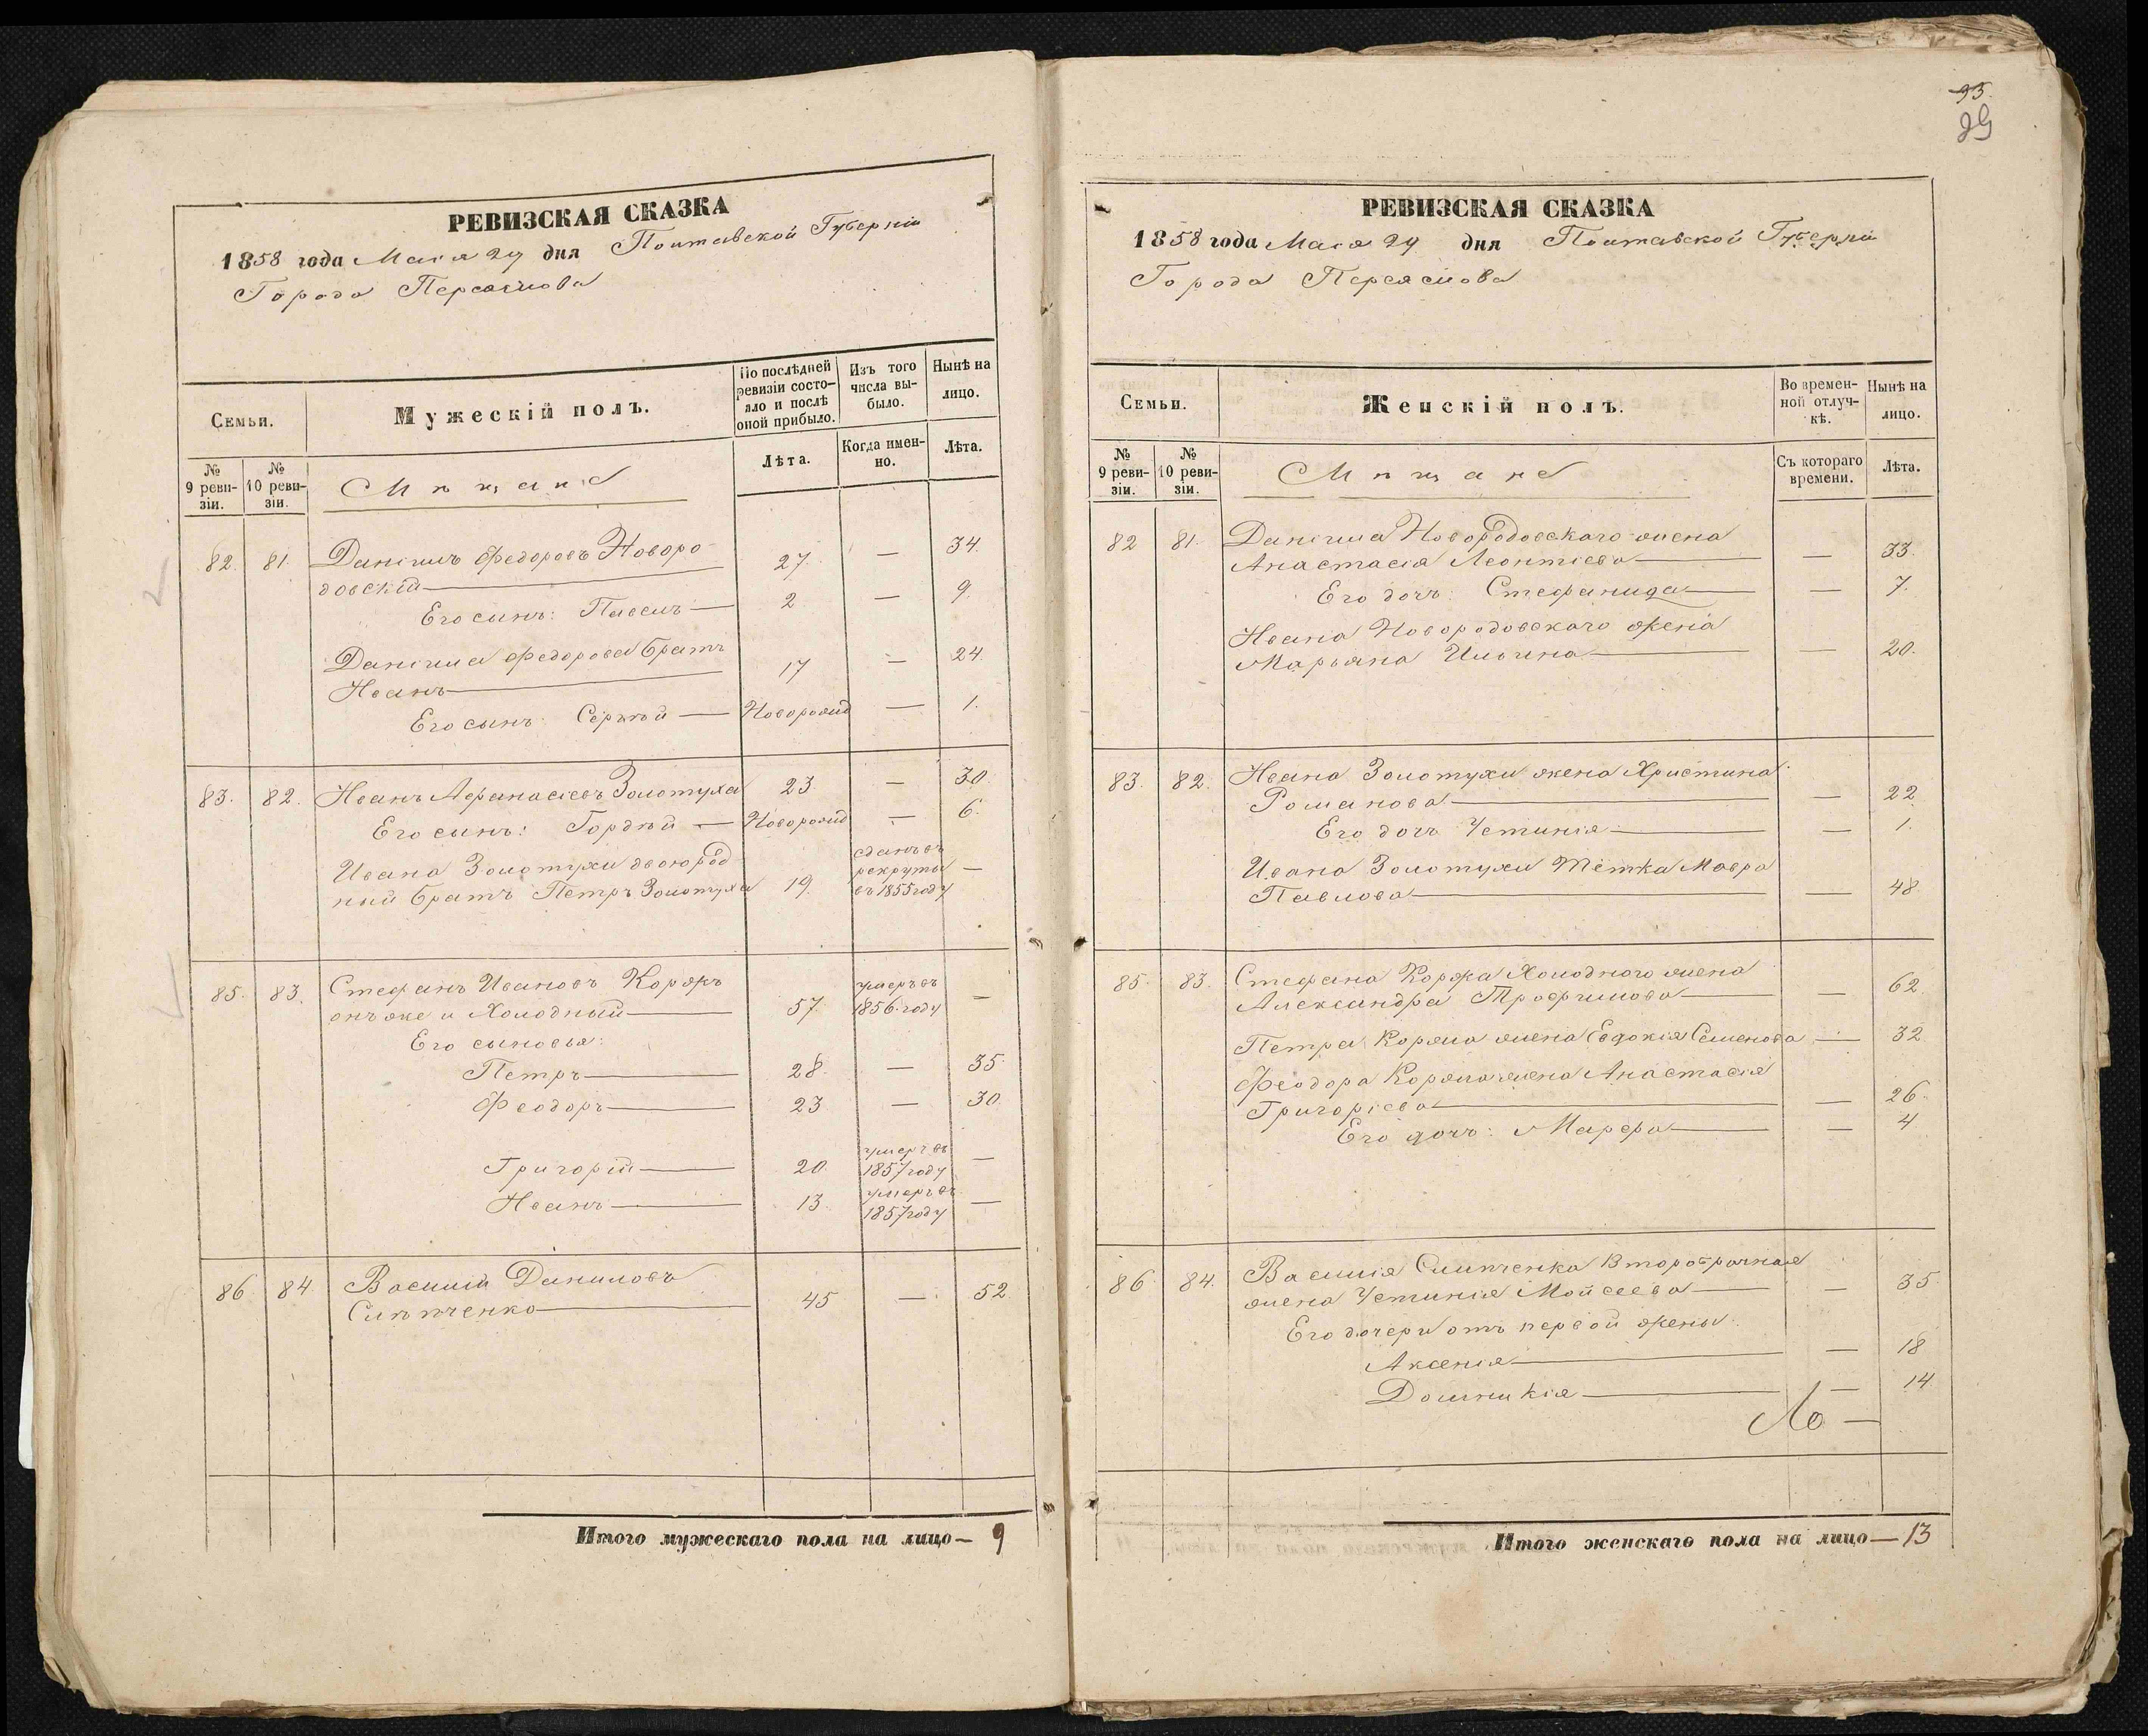 РЕВИЗСКАЯ СКАЗКА
1858 года Маія 29 дня Полтавской Губерніи
Города Переяслова
Семьи.
Мужескій полъ.
По послѣдней ревизіи состояло и послѣ оной прибыло.
Изъ того числа выбыло.
Нынѣ на лицо.
№ 9 ревизіи.
№ 10 ревизіи.
Мѣщане
Лѣта.
Когда именно.
Лѣта.
82. 81. Даніилъ Федоровъ Новоро-
довскій 27. — 34.
Его сынъ: Павелъ 2 — 9.
Даніила Федорова братъ
Иванъ 17 — 24.
Его сынъ Сергѣй Новорожд — 1.
83. 82. Иванъ Афанасіевъ Золотуха 23. — 30.
Его сынъ: Гордѣй Новорожд — 6.
Ивана Золотухи двоюрод-
ный братъ Петръ Золотуха 19. сданъ въ рекруты въ 1855 году —
85. 83. Стефанъ Ивановъ Коржъ
онъ же и Холодный 57. умеръ въ 1856 году —
Его сыновья:
Петръ 28. — 35.
Феодоръ 23 — 30.
Григорій 20. умеръ въ 1857 году —
Иванъ 13. умеръ въ 1857 году —
86. 84. Василій Даниловъ
Слѣпченко 45 — 52.
Итого мужескаго пола на лицо — 9
93.
89
РЕВИЗСКАЯ СКАЗКА
1858 года Маія 29 дня Полтавской Губерніи
Города Переяслова
Семьи.
Женскій полъ.
Во временной отлучкѣ.
Нынѣ на лицо.
№ 9 ревизіи.
№ 10 ревизіи.
Мѣщане
Съ котораго времени.
Лѣта.
82 81. Даніила Новородовскаго жена
Анастасія Леонтіева — 33.
Его дочь: Стефанида — 7.
Ивана Новородовскаго жена
Марьяна Ильина — 20.
83. 82. Ивана Золотухи жена Христина
Романова — 22
Его дочь Устинія — 1.
Ивана Золотухи тётка Мавра
Павлова — 48
85. 83. Стефана Коржа Холоднаго жена
Александра Трофимова — 62.
Петра Коржа жена Евдокія Семенова — 32
Феодора Коржа жена Анастасія
Григоріева — 26.
Его дочь: Марфа — 4
86. 84. Василія Слѣпченка второбрачная
жена Устинія Мойсеева — 35.
Его дочери отъ первой жены:
Аксенія — 18
Домникія — 14
Итого женскаго пола на лицо — 13